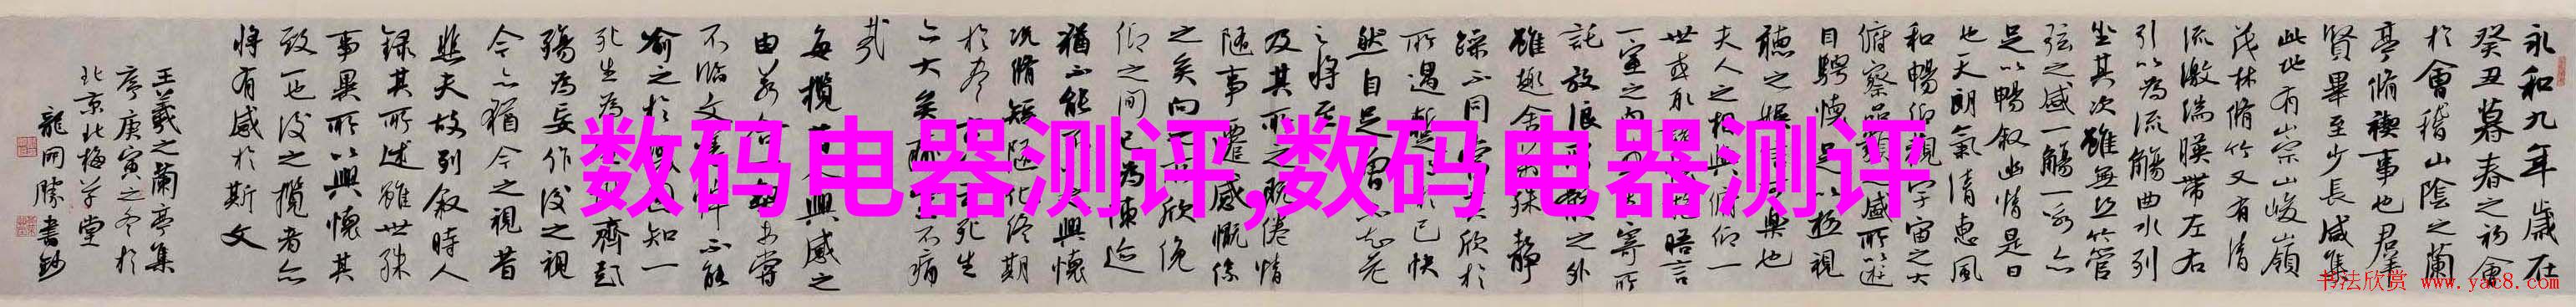 永和九年歲在
癸丑暮春之初會
於會稽山陰之蘭
亭脩禊事也群
賢畢至少長咸集
此地有崇山峻嶺
茂林脩竹又有清
流激湍暎帶左右
引以為流觴曲水列
坐其次雖無絲竹管
弦之盛一觴一詠亦
足以暢叙幽情是日
也天朗氣清惠風
和暢仰觀宇宙之大
俯察品類之盛所以遊
目騁懷足以極視
聽之娛
樂也
夫人之相與俯仰一
世或取
晤言
一室之內
寄所
託放浪
之外
雖趣舍
殊靜
躁不同當
欣於
所遇暫
己快
然自足
老
之將至
及其所之既倦情
隨事遷感慨係
之矣向之所欣俛
仰之間已為陳迹
猶不能不
興懷
況脩短隨化終期
於盡
死生
亦大矣
不痛
哉
每攬昔人興感之
由若合一契未嘗
不臨文嗟悼不能
喻之於懷固知一
死生為虛
齊彭
殤為妄作後之視
今亦猶今之視昔
悲夫故列叙時人
錄其所述雖世殊
事異所以興懷其
致一也後之攬者亦
將有感於斯文
王羲之蘭亭集
序庚寅之冬於
北京北梅草堂
龍開勝書鈔
数码电器测评,数码电器测评
书法欣赏 www.yac8.com